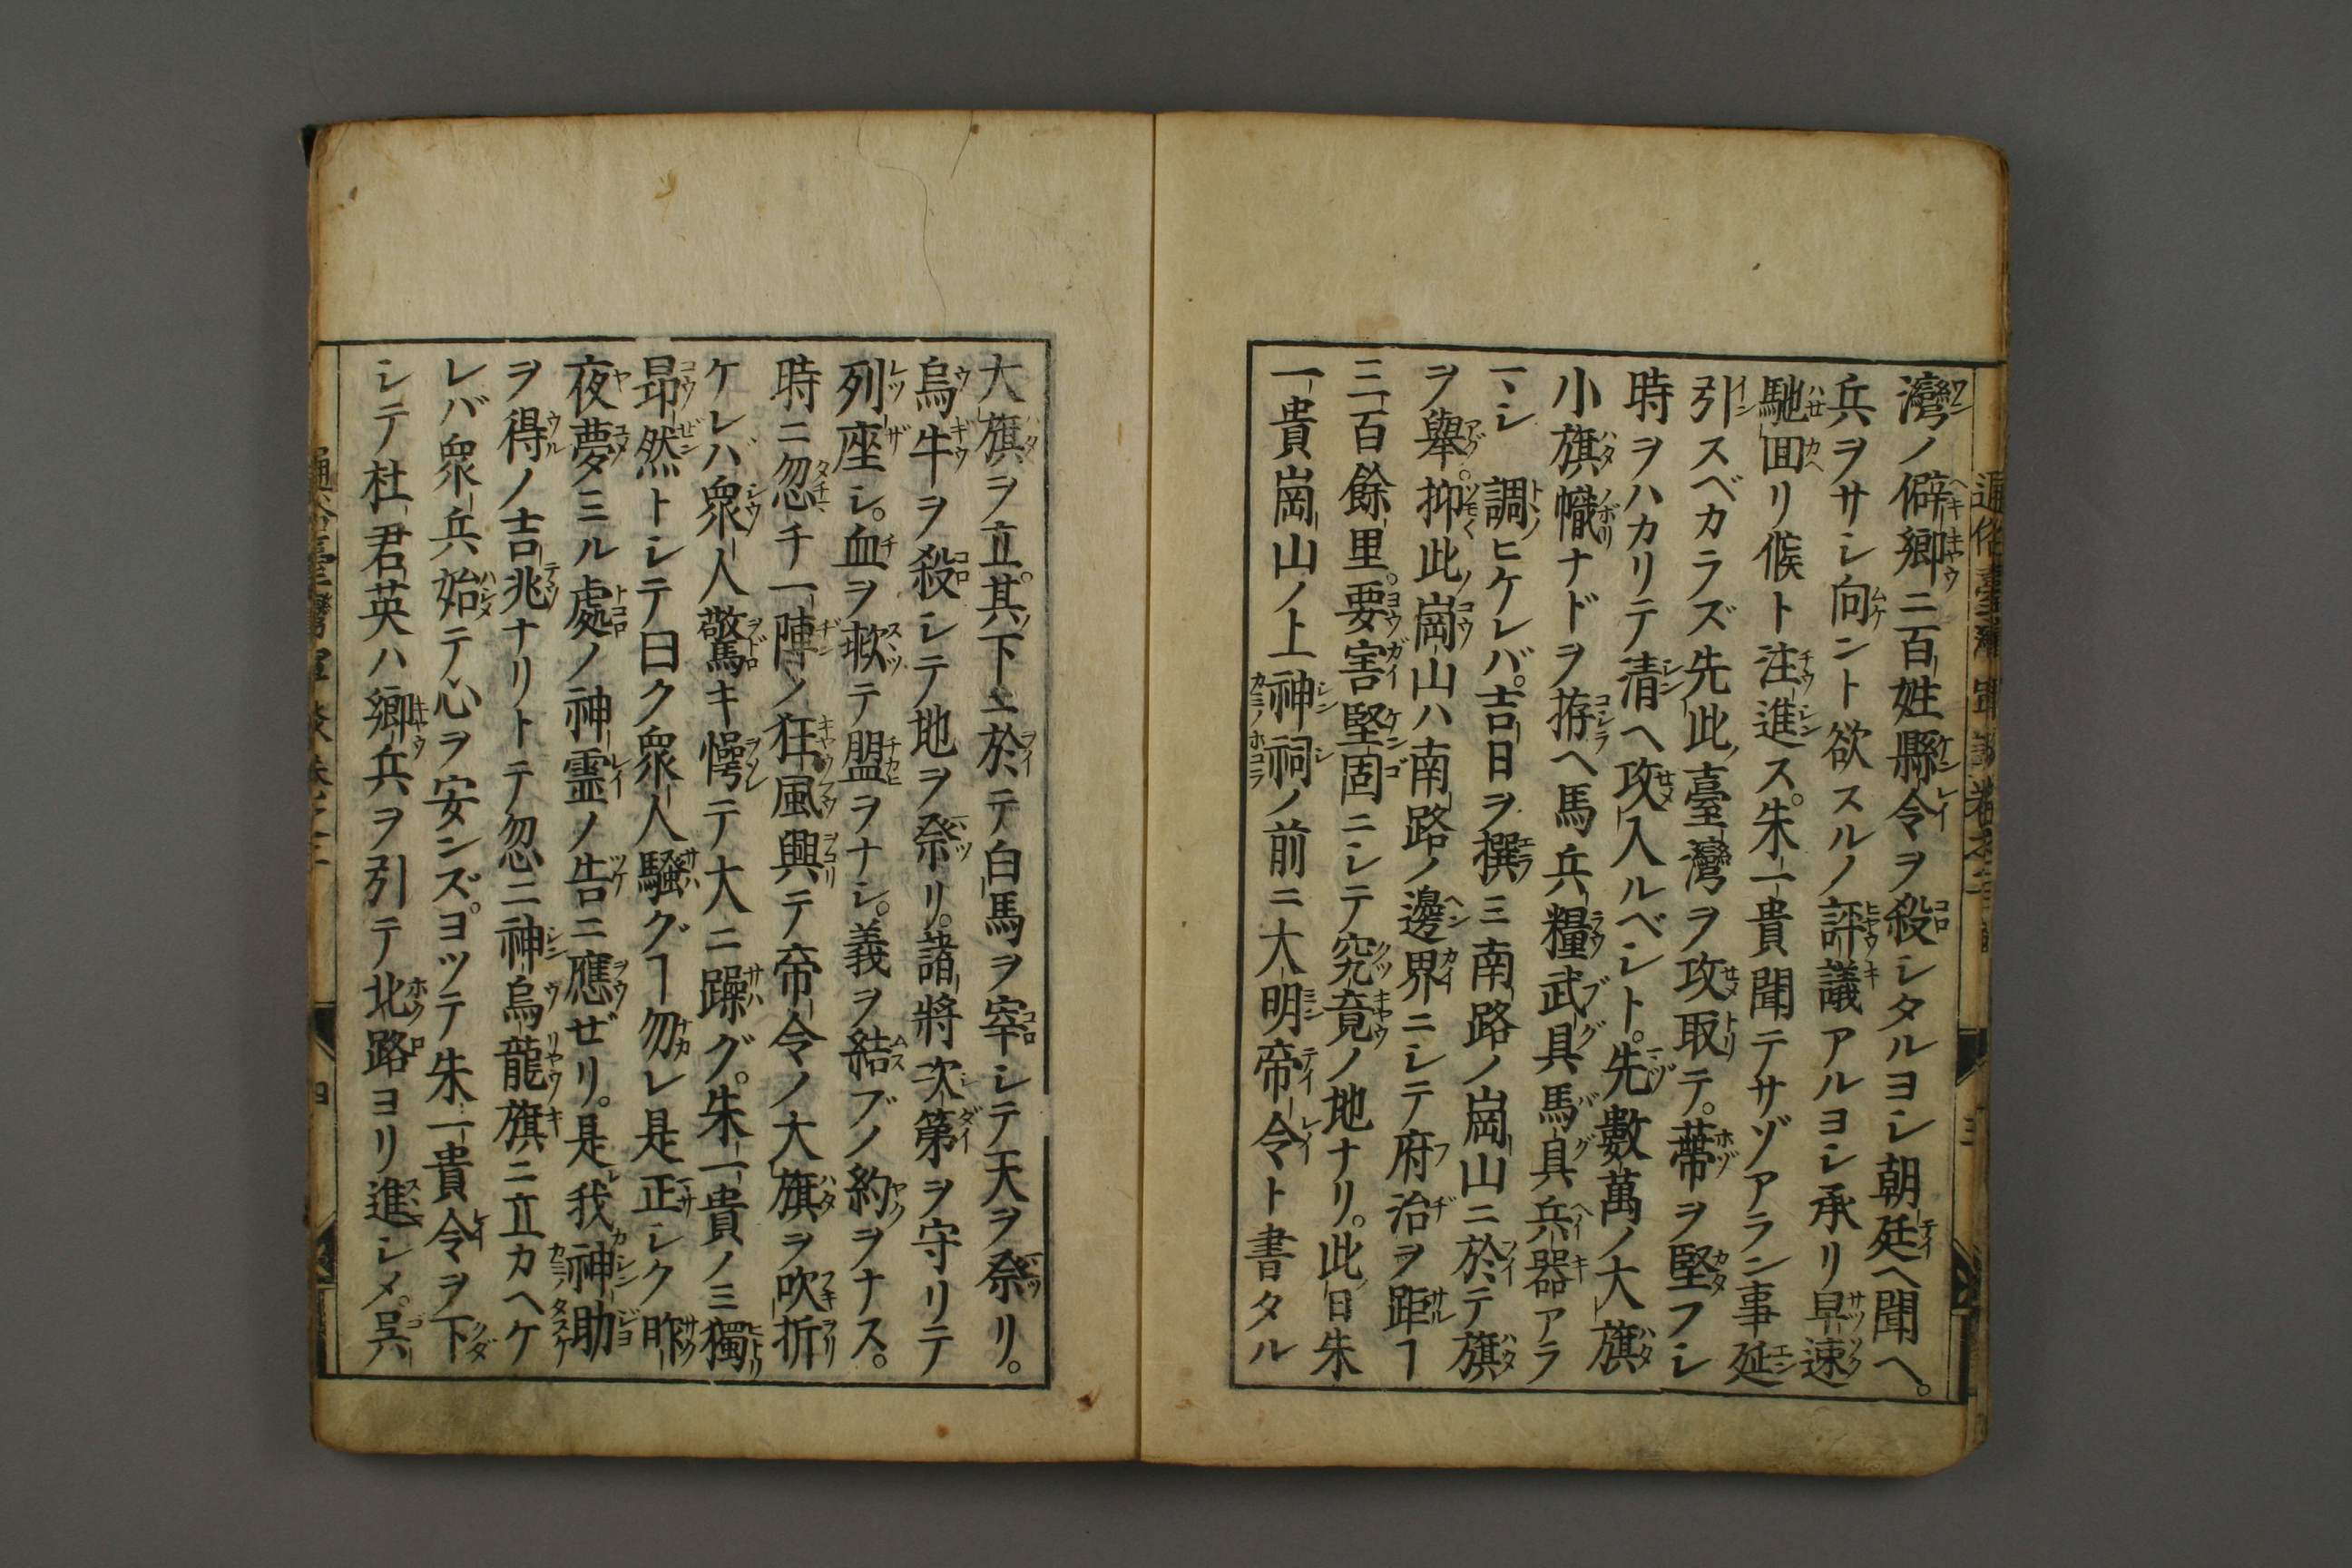 灣ノ僻卿ニ百姓縣令ヲ殺シタルヨシ朝廷ヘ聞ヘ。
兵ヲサシ向ント欲スルノ評議アルヨシ承リ早速
馳囬リ候ト注進ス。朱一貴聞テサゾアラン事延
引スベカラズ先此臺灣ヲ攻取テ。蔕ヲ堅フシ
時ヲハカリテ清ヘ攻入ルベシト。先數萬ノ大旗
小旗幟ナドヲ拵ヘ馬兵糧武具馬具兵器アラ
マシ調ヒケレバ。吉日ヲ撰ミ南路ノ崗山ニ於テ旗
ヲ舉。抑此崗山ハ南路ノ邊界ニシテ府治ヲ距ヿ
三百餘里。要害堅固ニシテ究竟ノ地ナリ。此日朱
一貴崗山ノ上神祠ノ前ニ大明帝令ト書タル
大旗ヲ立。其下ニ於テ白馬ヲ宰シテ天ヲ祭リ。
烏牛ヲ殺シテ地ヲ祭リ。諸將次第ヲ守リテ
列座シ。血ヲ歃テ盟ヲナシ。義ヲ結ブノ約ヲナス。
時ニ忽チ一陣ノ狂風興テ帝令ノ大旗ヲ吹折
ケレバ衆人驚キ愕テ大ニ躁グ。朱一貴ノミ獨
昂然トシテ曰ク衆人騷グヿ勿レ是正シク昨
夜夢ミル處ノ神霊ノ告ニ應ゼリ。是我神助
ヲ得ノ吉兆ナリトテ忽ニ神烏龍旗ニ立カヘケ
レバ衆兵始テ心ヲ安ンズ。ヨツテ朱一貴令ヲ下
シテ杜君英ハ卿兵ヲ引テ北路ヨリ進シメ。呉
四